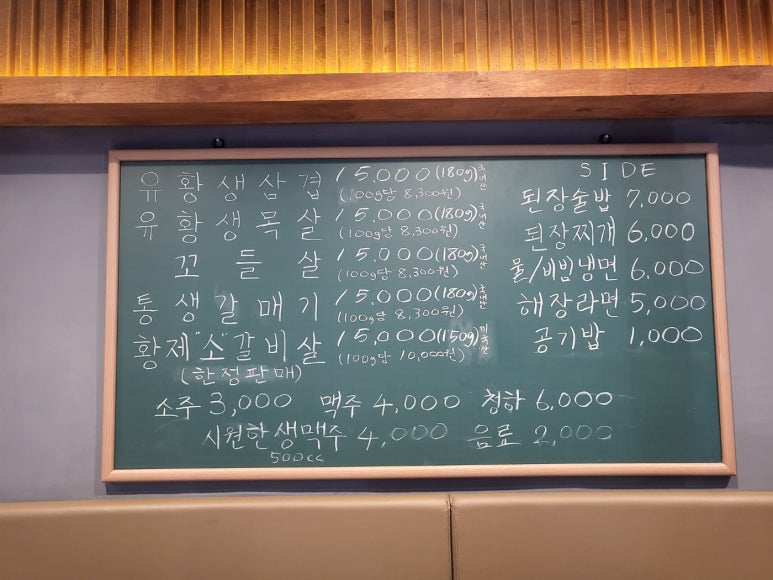 유황생삼겹 15,000(180g)국내산
(100g당 8,300원)
유황생목살 15,000(180g)국내산
(100g당 8,300원)
꼬들살 15,000(180g)국내산
(100g당 8,300원)
통생갈매기 15,000(180g)국내산
(100g당 8,300원)
황제"소"갈비살 15,000(150g)미국산
(100g당 10,000원)
(한정판매)
SIDE
된장술밥 7,000
된장찌개 6,000
물/비빔냉면 6,000
해장라면 5,000
공기밥 1,000
소주 3,000 맥주 4,000 청하 6,000
시원한생맥주 4,000 음료 2,000
500cc